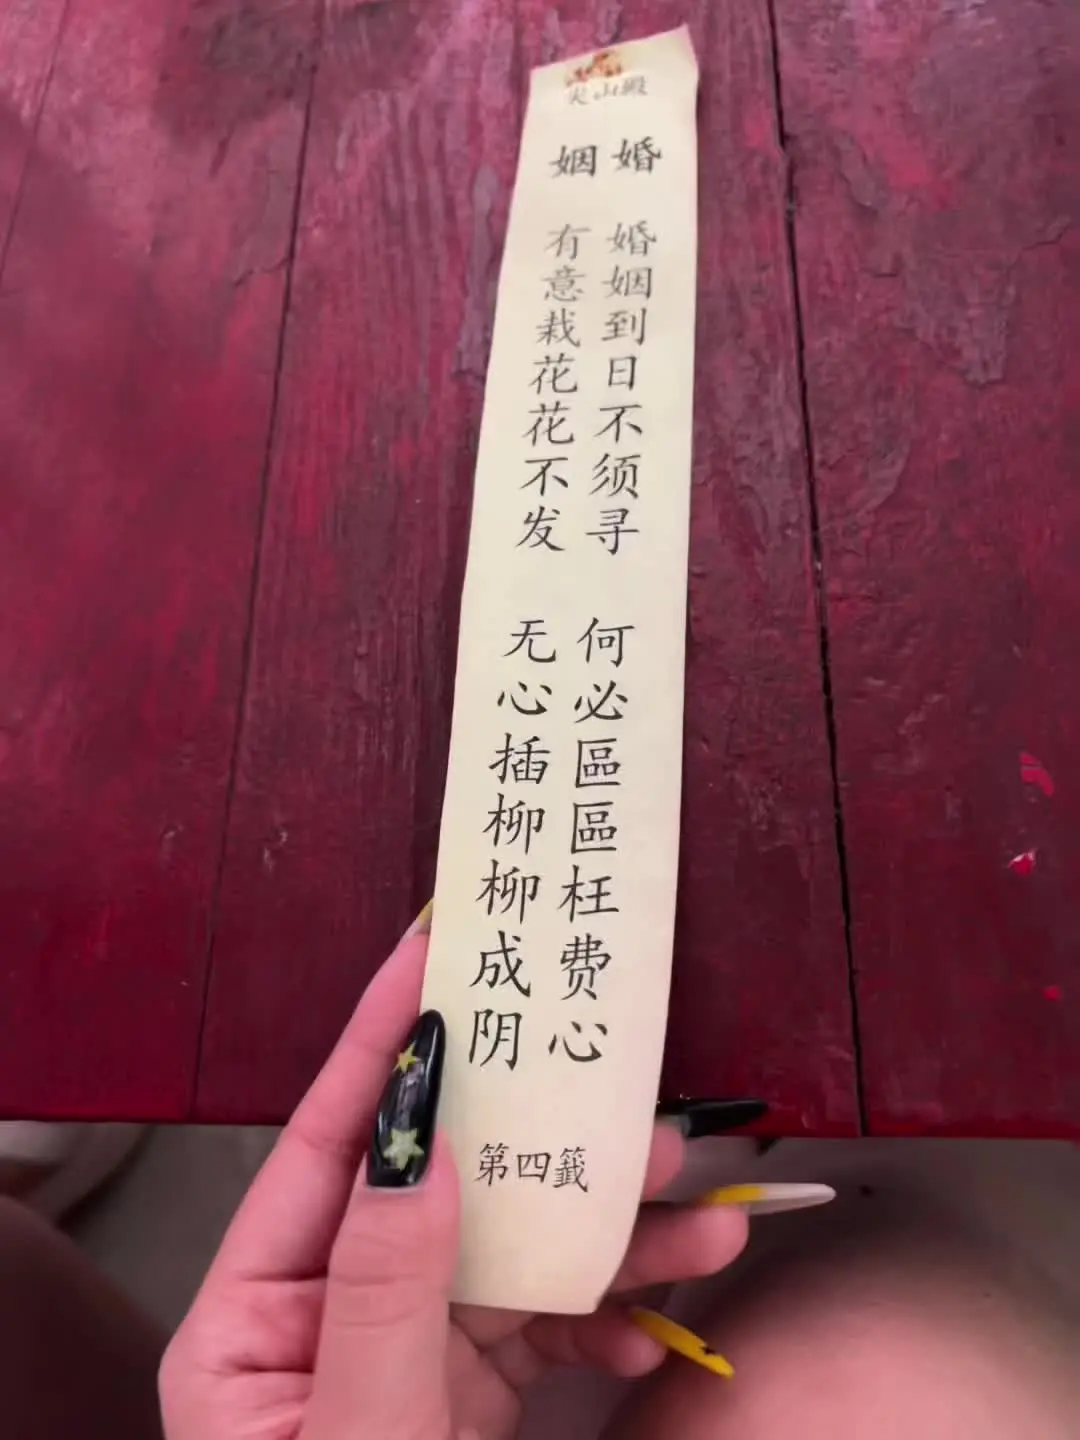 尖山殿
婚姻
婚姻到日不须寻
何必區區枉费心
有意栽花花不发
无心插柳柳成阴
第四籤